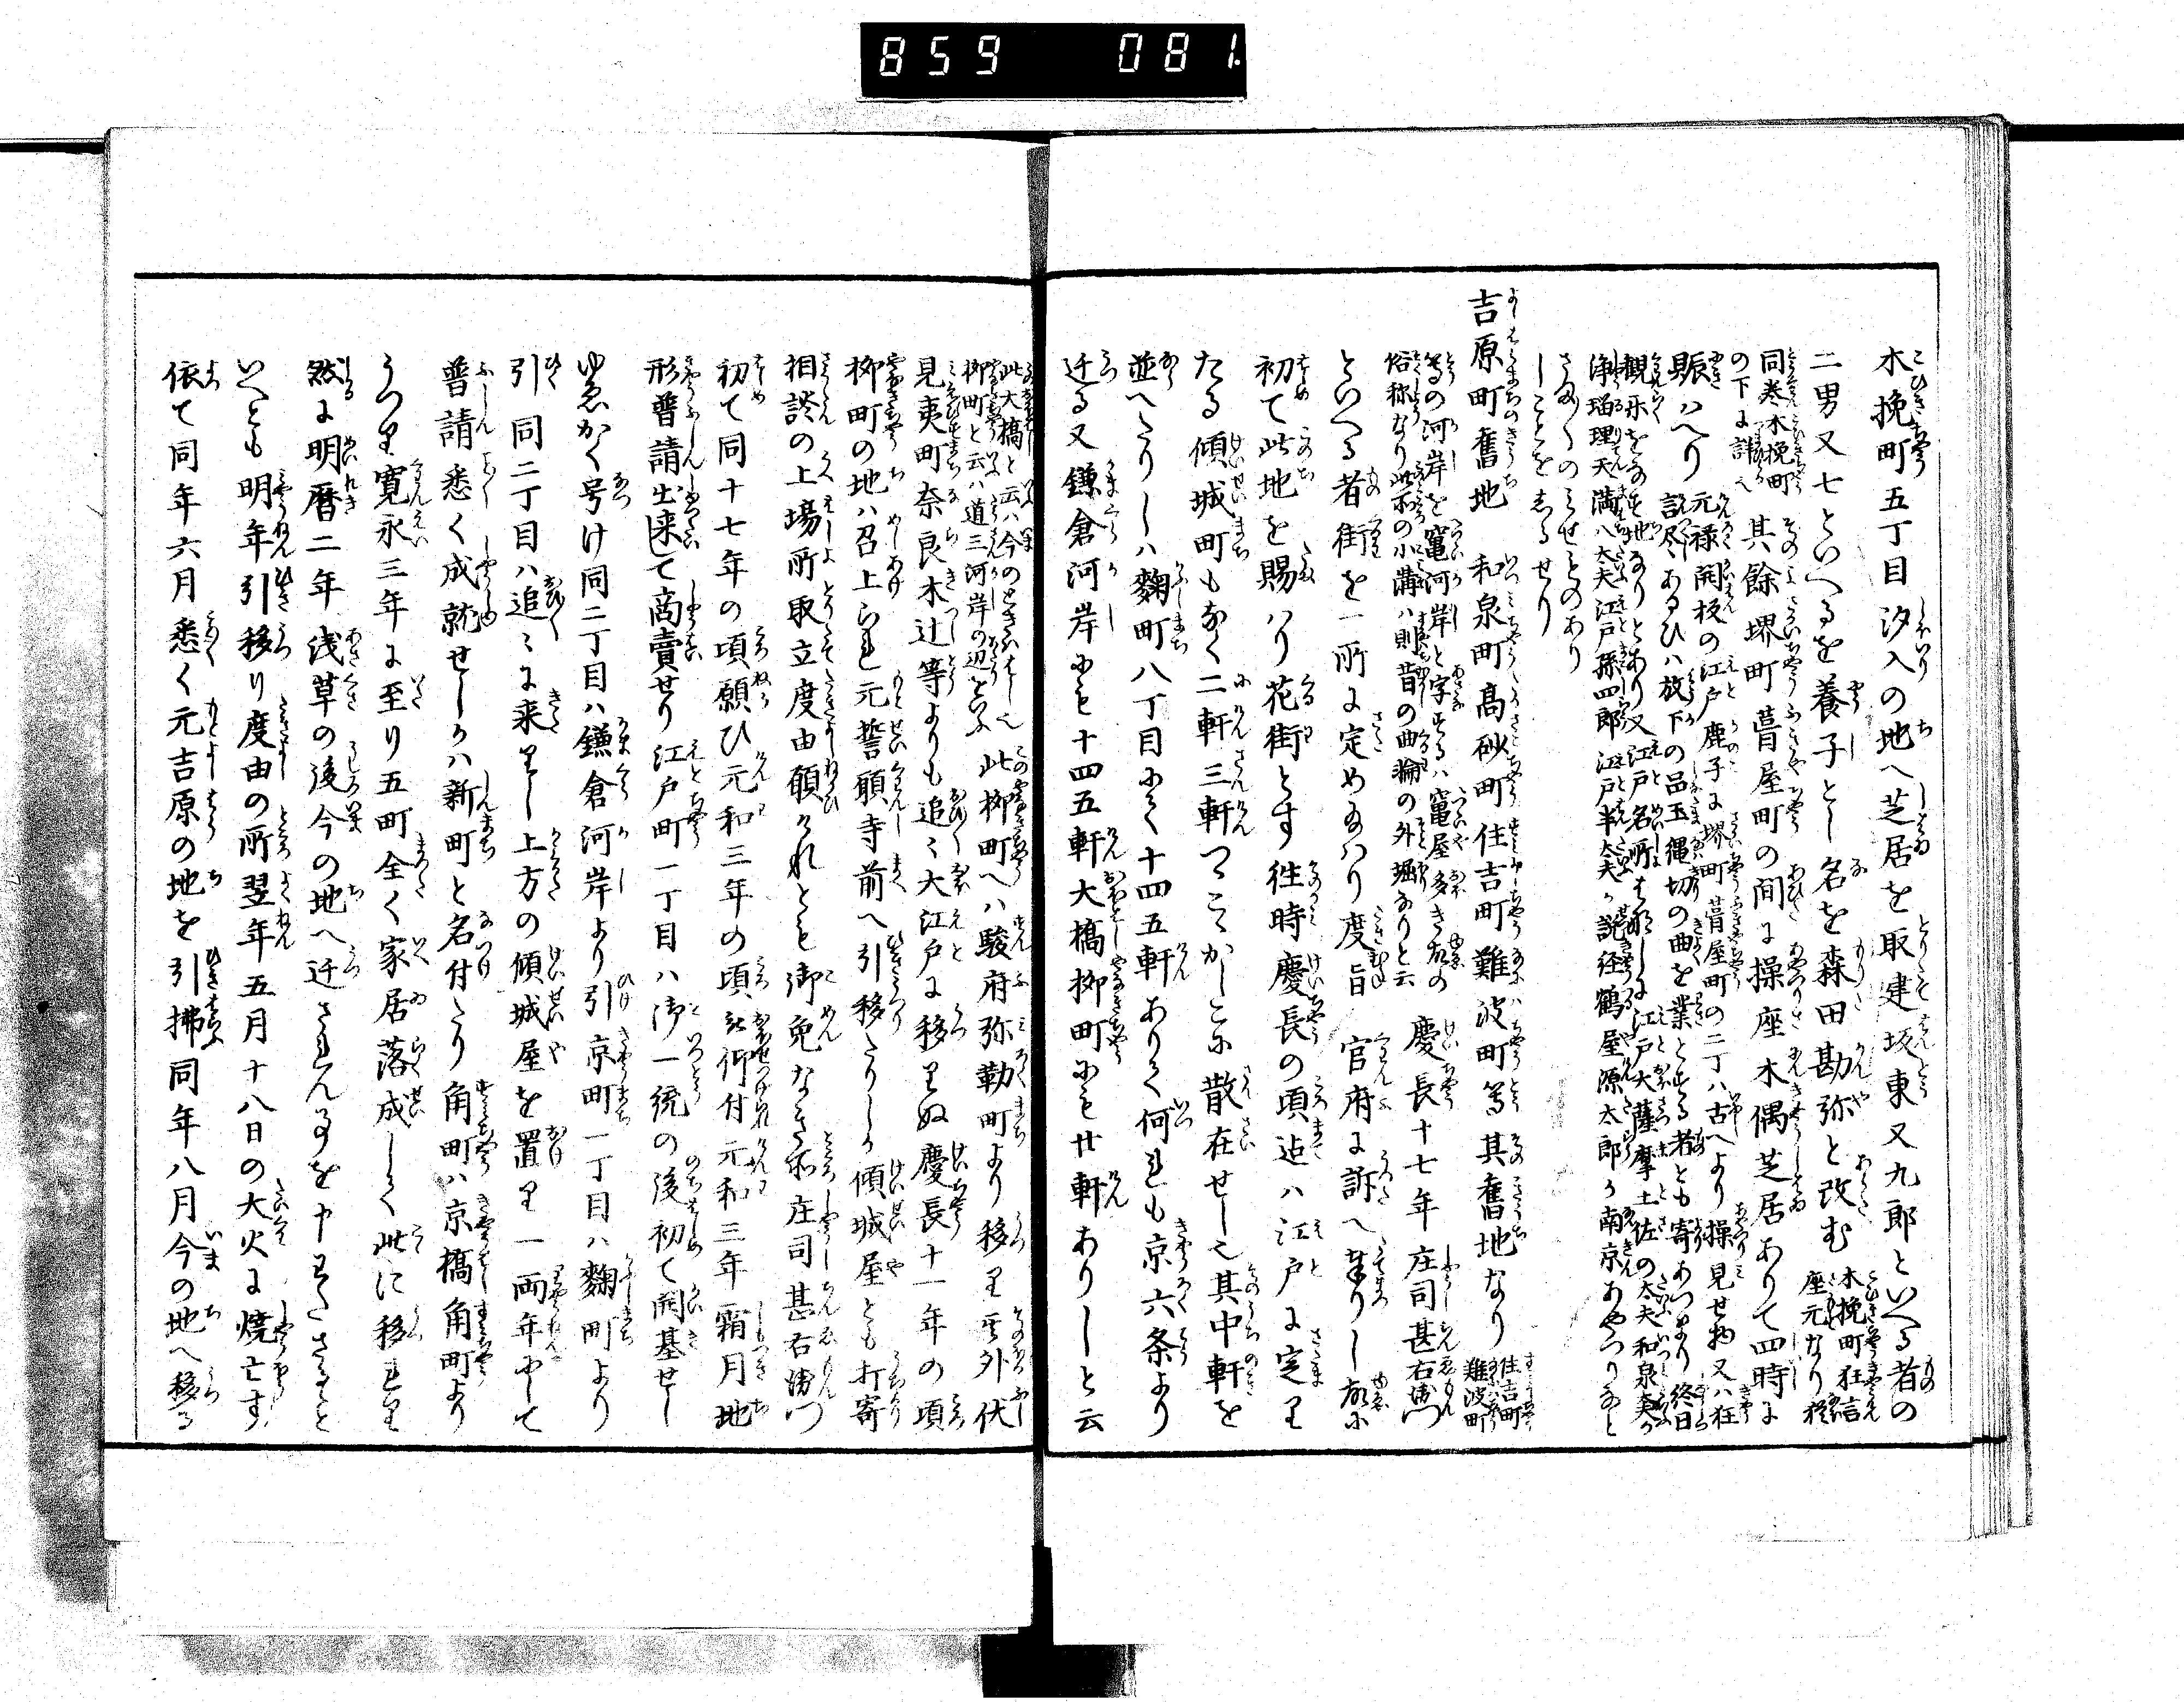 859 081.
木挽町五丁目汐入の地へ芝居を取建坂東又九郎といへる者の
二男又七といへるを養子とし名を森田勘弥と改む
木挽町狂言
座元なり猶
同巻木挽町
の下に詳へ
其餘堺町葺屋町の間に操座木偶芝居ありて四時に
賑はへり
元禄開板の江戸鹿子に堺町葺屋町の二丁は古へより操見せ物又は狂
言尽あるひは放下の品玉縄切の曲を業とする者とも寄あつまり終日
観楽をなす地なりとあり又江戸名所はなしに江戸大薩摩土佐の太夫和泉太夫か
浄瑠理天満八太夫江戸孫四郎江戸半太夫か説経鶴屋源太郎か南京あやつりなと
さま〳〵のみせものあり
しことをしるせり
吉原町舊地 和泉町髙砂町住吉町難波町等其舊地なり
住吉町
難波町
等の河岸を竃河岸と字するは竃屋多き故の
俗称なり此所の小溝は則昔の曲輪の外堀なりと云
慶長十七年庄司甚右衛門
といへる者街を一所に定め給はり度旨 官府に訴へ奉りし故に
初て此地を賜はり花街とす徃時慶長の頃迠は江戸に定り
たる傾城町もなく二軒三軒つゝこゝかしこに散在せし也其中軒を
並へたりしは麹町八丁目にて十四五軒ありて何れも京六条より
迁る又鎌倉河岸にも十四五軒大橋柳町にも廿軒ありしと云
此大橋と云は今のときははし也
柳町と云は道三河岸の辺をいふ
此柳町へは駿府弥勒町より移り其外伏
見夷町奈良木辻等よりも追々大江戸に移りぬ慶長十一年の頃
柳町の地は召上られ元誓願寺前へ引移たりしか傾城屋とも打寄
相談の上場所取立度由願けれとも御免なき所庄司甚右衛門
初て同十七年の頃願ひ元和三年の頃被仰付元和三年霜月地
形普請出来て商賣せり江戸町一丁目は御一統の後初て開基せし
ゆゑかく号け同二丁目は鎌倉河岸より引京町一丁目は麹町より
引同二丁目は追々に来りし上方の傾城屋を置り一両年にして
普請悉く成就せしかは新町と名付たり角町は京橋角町より
うつり寛永三年に至り五町全く家居落成して此に移れり
然に明暦二年浅草の後今の地へ迁されん事を申わたさるゝと
いへとも明年引移り度由の所翌年五月十八日の大火に焼亡す
依て同年六月悉く元吉原の地を引拂同年八月今の地へ移る